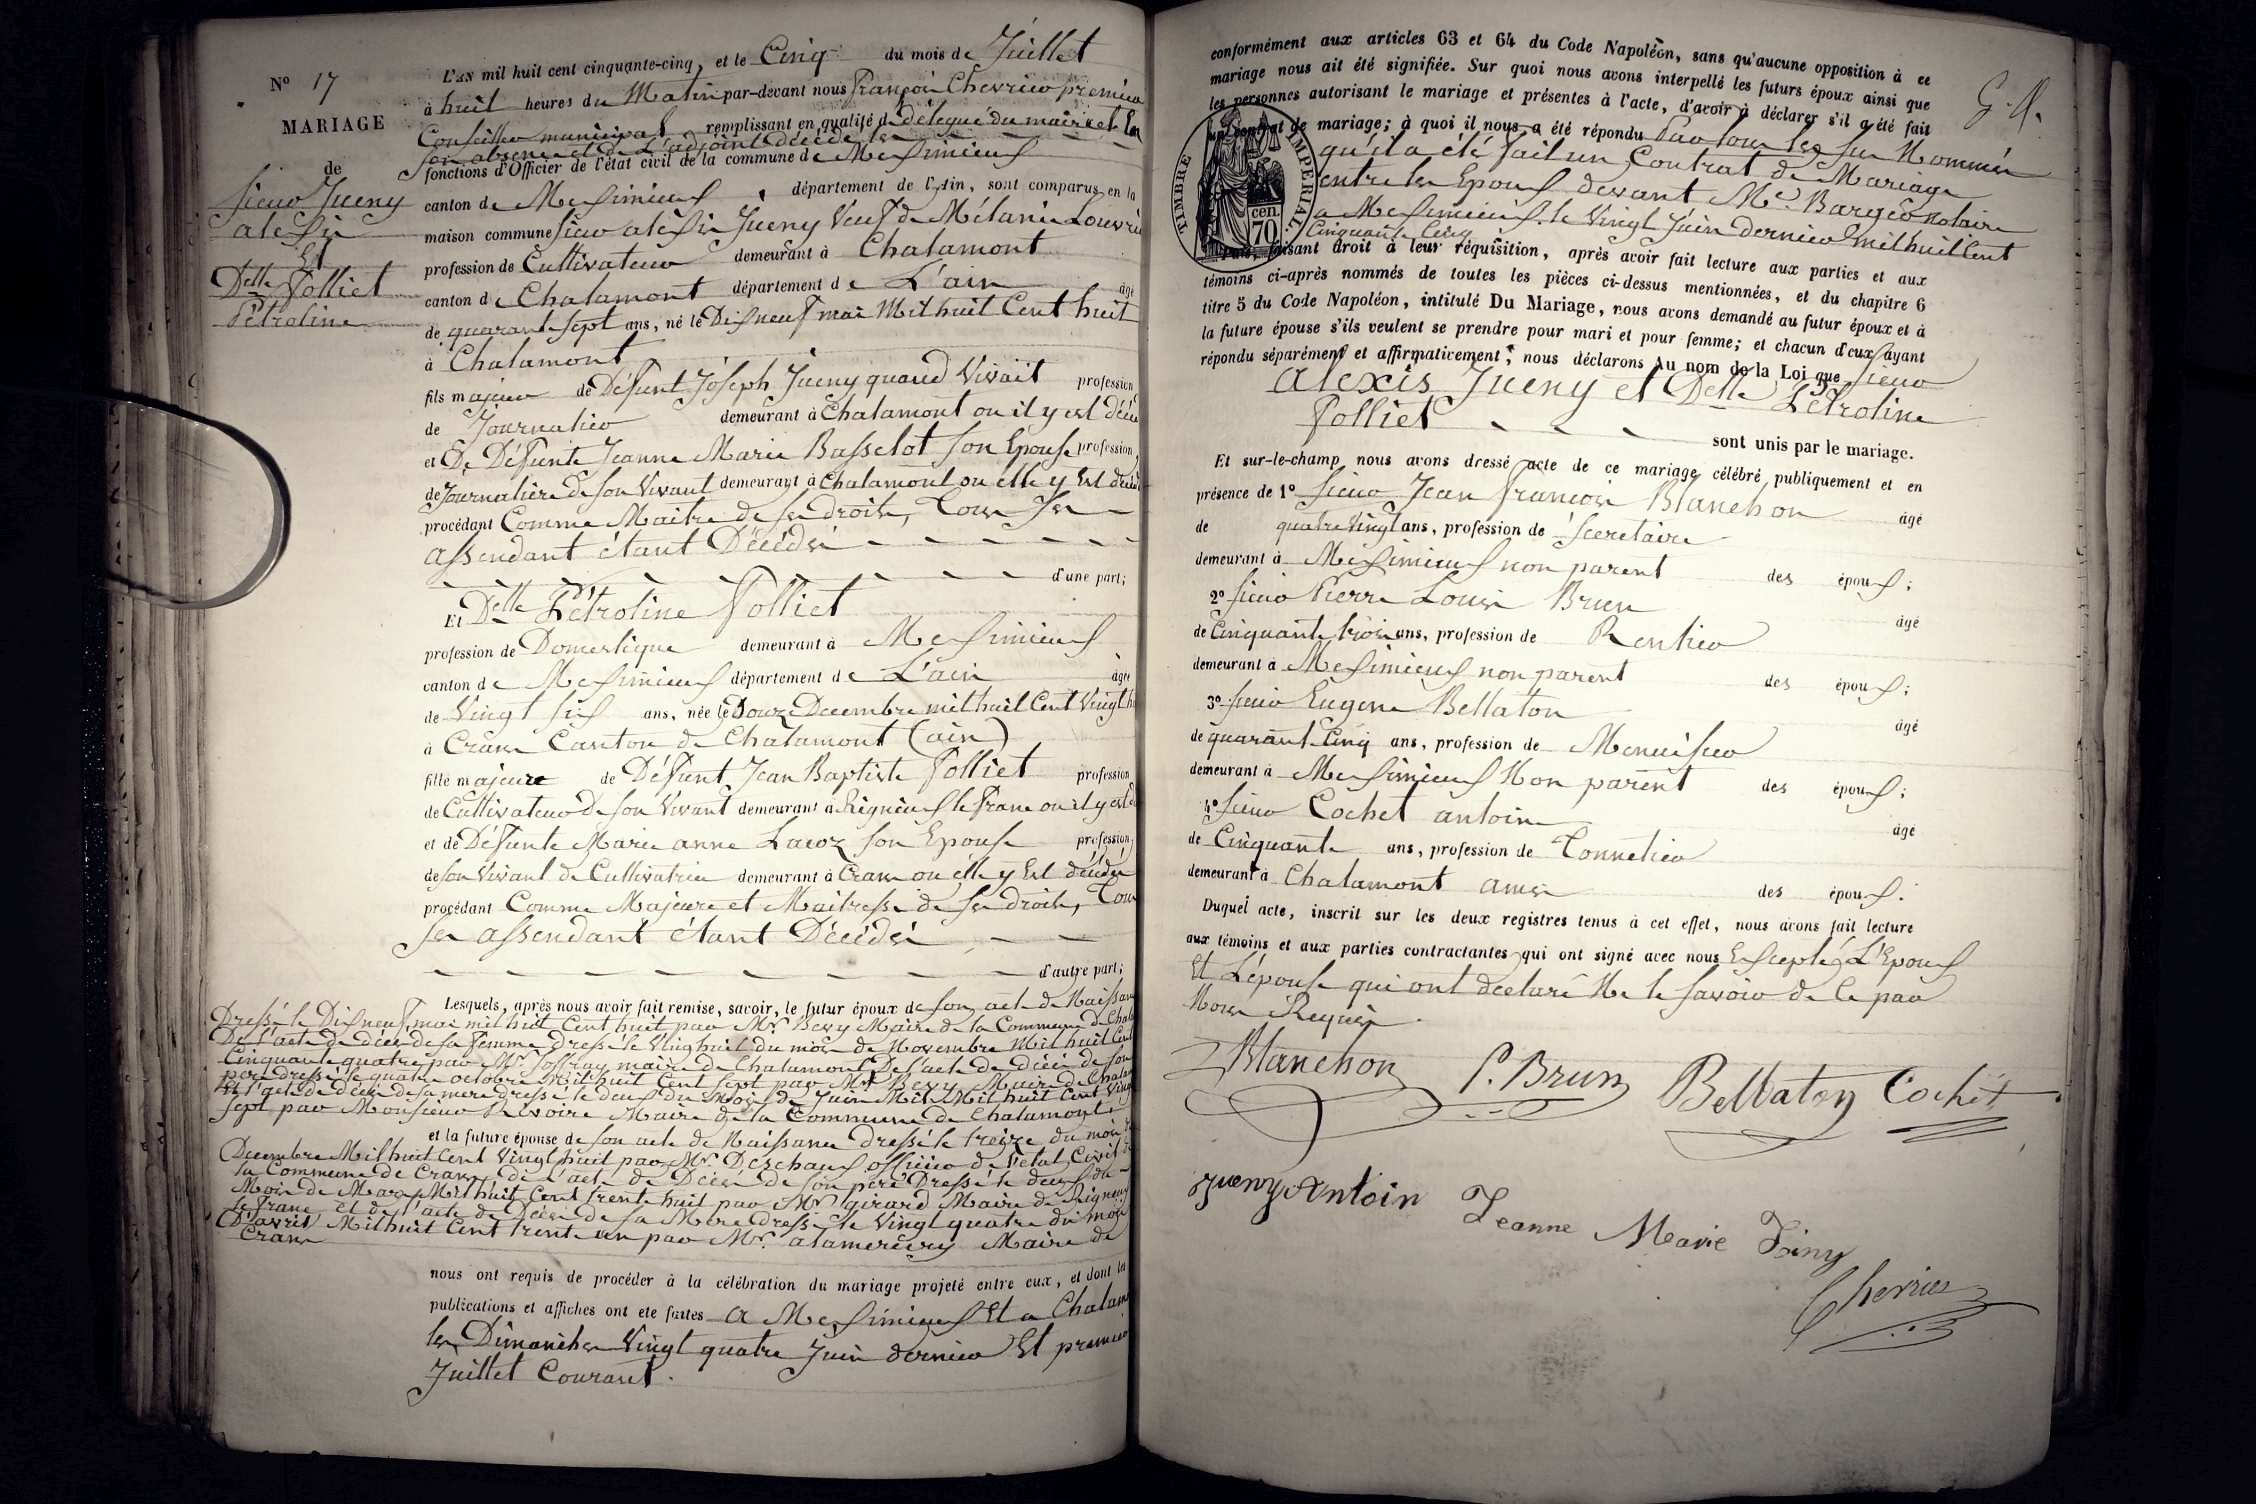 N° 17
MARIAGE
de
Sieur Jueny
alexis
Et
Delle Folliet
Pétroline
L'an mil huit cent cinquante-cinq, et le Cinq du mois de Juillet
à huit heures du Matin par-devant nous François Chevrier premier
Conseiller municipal remplissant en qualité de délégué du maire et En
son absence et de L'adjoint décédé les
fonctions d'Officier de l'état civil de la commune de Meximieux
canton de Meximieux, département de l'Ain, sont comparus en la
maison commune Sieur alexis Jueny Veuf de Mélanie Louvrier
profession de Cultivateur demeurant à Chalamont
canton de Chalamont département de L'ain âgé
de quarant sept ans, né le Dix neuf mai Mil huit Cent huit
à Chalamont
fils majeur de Défunt Joseph Jueny quand Vivait profession
de Journalier demeurant à Chalamont ou il y est décédé
et De Défunte Jeanne Marie Basselot son Epouse profession
de Journalière de son Vivant demeurant à Chalamont ou elle y Est décédé
procédant Comme Maitre de ses droits, Tous Ses
assendant étant Décédés
d'une part;
Et Delle Pétroline Folliet
profession de Domestique demeurant à Meximieux
canton de Meximieux département de L'ain âgée
de Vingt six ans, née le Douze Decembre mil huit Cent Vingt hu
à Crans Canton de Chalamont (ain)
fille majeure de Défunt Jean Baptiste Folliet profession
de Cultivateur de son Vivant demeurant à Rigneux le franc ou il y est
et de Défunte Marie anne Lacoz son Epouse profession
de son Vivant de Cultivatrice demeurant à Crans ou elle y Est décédée
procédant Comme Majeure et Maitresse de ses droits, Tous
ses assendant étant Décédés
d'autre part;
Lesquels, après nous avoir fait remise, savoir, le futur époux de son acte de Naissance
Dressé le Dix neuf mai mil huit Cent huit par Mr. Bevy Maire de la Commune de Chala
De L'acte de décès de sa femme dressé le Vinghuit du mois de Novembre Mil huit Cent
Cinquante quatre par Mr. Joffray maire de Chalamont De l'acte de décès de son
pere dressé le quatre octobre Mil huit Cent sept par Mr Bevy Maire de Chalam
Et l'acte de décès de sa mere dressé le deux du mois de Juin Mil Mil huit Cent Vingt
sept par Monsieur Revoire Maire de la Commune de Chalamont
et la future épouse de son acte de Naissance dressé le treize du mois
Decembre Mil huit Cent Vingt huit par Mr. Deschaux officier de l'état Civil
la Commune de Crans, de L'acte de Décès de son père Dressé le deux du
Mois de Mars Mil huit Cent trente huit par Mr girard Maire de Rigneux
le franc et de l'acte de Décès de sa Mere dressé le Vingt quatre du mois
D'avril Mil huit Cent trente un par Mr. alamercery Maire de
Crans
nous ont requis de procéder à la célébration du mariage projeté entre eux, et dont les
publications et affiches ont été faites a Meximieux Et a Chalam
les Dimanches Vingt quatre Juin dernier Et premier
Juillet Courant.
conformément aux articles 63 et 64 du Code Napoléon, sans qu'aucune opposition à ce
mariage nous ait été signifiée. Sur quoi nous avons interpellé les futurs époux ainsi que
les personnes autorisant le mariage et présentes à l'acte, d'avoir à déclarer s'il a été fait
un contrat de mariage; à quoi il nous a été répondu Par tous les sus Nommés
qu'il a été fait un Contrat de Mariage
entre les Epoux devant Me. Bargeo Notaire
a Meximieux le Vingt Juin dernier mil huit Cent
Cinquante Cinq
TIMBRE IMPERIAL.
cen.
70
Puis, faisant droit à leur réquisition, après avoir fait lecture aux parties et aux
témoins ci-après nommés de toutes les pièces ci-dessus mentionnées, et du chapitre 6
titre 5 du Code Napoléon, intitulé Du Mariage, nous avons demandé au futur époux et à
la future épouse s'ils veulent se prendre pour mari et pour femme; et chacun d'eux ayant
répondu séparément et affirmativement, nous déclarons Au nom de la Loi que Sieur
Alexis Jueny et Delle Pétroline
Folliet
sont unis par le mariage.
Et sur-le-champ nous avons dressé acte de ce mariage célébré publiquement et en
présence de 1° Sieur Jean François Blanchon âgé
de quatre Vingt ans, profession de Secretaire
demeurant à Meximieux non parent des époux;
2° Sieur Pierre Louis Brun âgé
de Cinquante trois ans, profession de Rentier
demeurant à Meximieux non parent des époux;
3° Sieur Eugene Bellaton âgé
de quarant Cinq ans, profession de Menuisier
demeurant à Meximieux Non parent des époux;
4° Sieur Cochet antoine âgé
de Cinquante ans, profession de Tonnelier
demeurant à Chalamont amis des époux.
Duquel acte, inscrit sur les deux registres tenus à cet effet, nous avons fait lecture
aux témoins et aux parties contractantes qui ont signé avec nous Excepté L'Epoux
Et L'épouse qui ont declaré Ne le savoir de ce par
Nous Requis.
Blanchon P. Brun Bellaton Cochet
Jueny Antoin Jeanne Marie
Chevrier